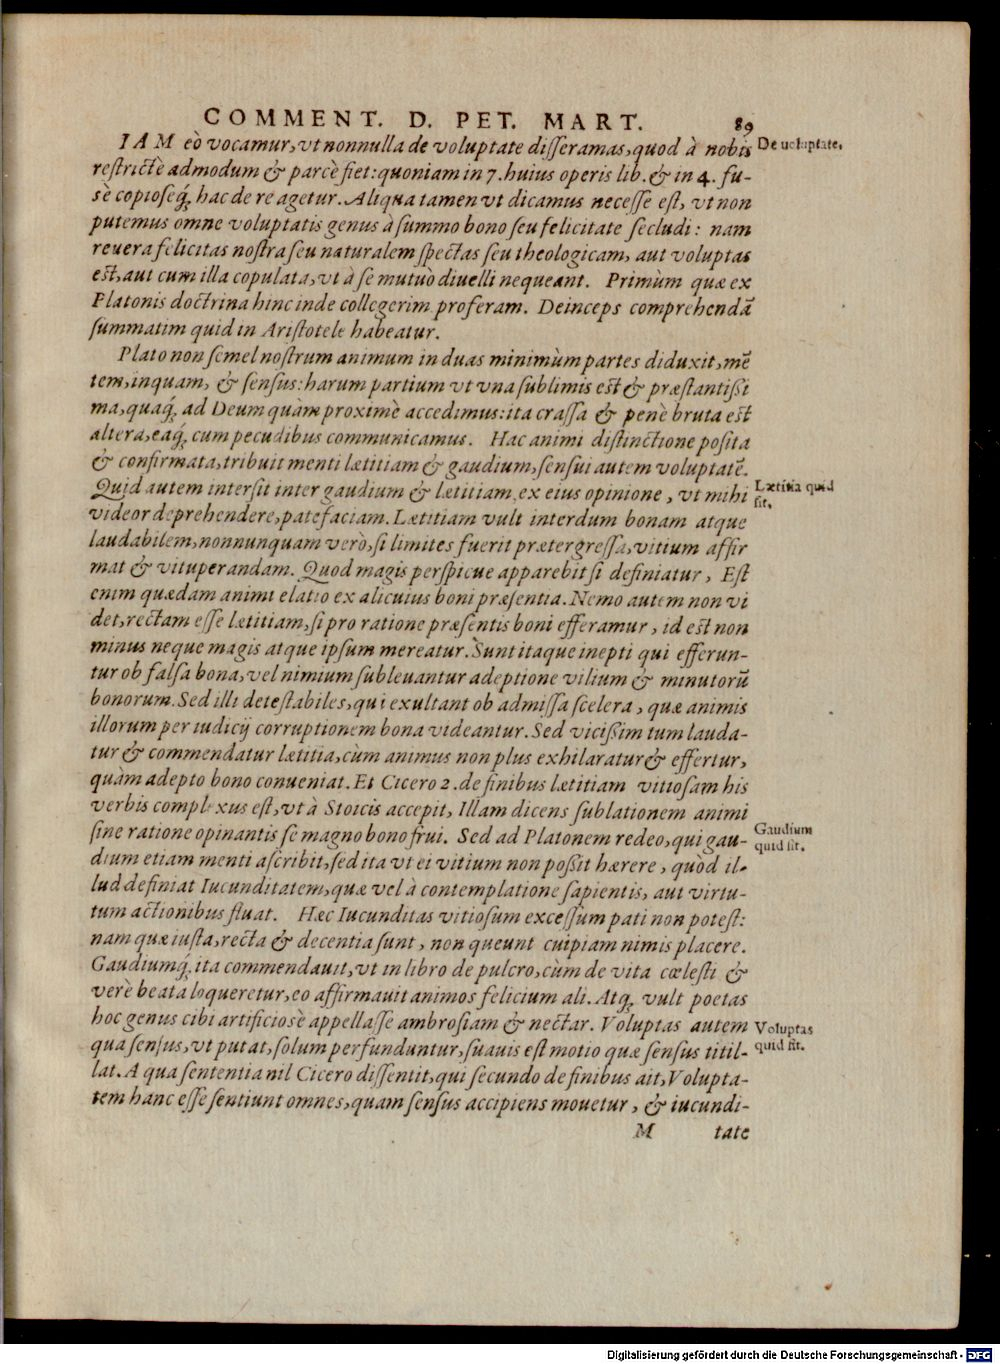 COMMENT. D. PET. MART. 89
IAM eò vocamur, vt nonnulla de voluptate disseramas, quod à nobis De voluptate.
restrictè admodum & parcè fiet: quoniam in 7. huius operis lib. & in 4. fu-
sè copioseq́; hac de re agetur. Aliqua tamen vt dicamus necesse est, vt non
putemus omne voluptatis genus à summo bono seu felicitate secludi: nam
reuera felicitas nostra seu naturalem spectas seu theologicam, aut voluptas
est, aut cum illa copulata, vt à se mutuò diuelli nequeant. Primùm quæ ex
Platonis doctrina hinc inde collegerim proferam. Deinceps comprehendā
summatim quid in Aristotele habeatur.
Plato non semel nostrum animum in duas minimùm partes diduxit, mē
tem, inquam, & sensus: harum partium vt vna sublimis est & præstantißi
ma, quaq́; ad Deum quàm proximè accedimus: ita crassa & penè bruta est
altera, eaq́; cum pecudibus communicamus. Hac animi distinctione posita
& confirmata, tribuit menti lætitiam & gaudium, sensui autem voluptatē.
Quid autem intersit inter gaudium & lætitiam, ex eius opinione, vt mihi Lætitia quid
sit.
videor deprehendere, patefaciam. Lætitiam vult interdum bonam atque
laudabilem, nonnunquam verò, si limites fuerit prætergressa, vitium affir
mat & vituperandam. Quod magis perspicue apparebit si definiatur, Est
enim quædam animi elatio ex alicuius boni præsentia. Nemo autem non vi
det, rectam esse lætitiam, si pro ratione præsentis boni efferamur, id est non
minus neque magis atque ipsum mereatur. Sunt itaque inepti qui efferun-
tur ob falsa bona, vel nimium subleuantur adeptione vilium & minutorū
bonorum. Sed illi detestabiles, qui exultant ob admissa scelera, quæ animis
illorum per iudicij corruptionem bona videantur. Sed vicißim tum lauda-
tur & commendatur lætitia, cùm animus non plus exhilaratur & effertur,
quàm adepto bono conueniat. Et Cicero 2. de finibus lætitiam vitiosam his
verbis complexus est, vt à Stoicis accepit, Illam dicens sublationem animi
sine ratione opinantis se magno bono frui. Sed ad Platonem redeo, qui gau- Gaudium
quid sit.
dium etiam menti ascribit, sed ita vt ei vitium non poßit hærere, quòd il-
lud definiat Iucunditatem, quæ vel à contemplatione sapientis, aut virtu-
tum actionibus fluat. Hæc Iucunditas vitiosum excessum pati non potest:
nam quæ iusta, recta & decentia sunt, non queunt cuipiam nimis placere.
Gaudiumq́; ita commendauit, vt in libro de pulcro, cùm de vita cœlesti &
verè beata loqueretur, eo affirmauit animos felicium ali. Atq; vult poetas
hoc genus cibi artificiosè appellasse ambrosiam & nectar. Voluptas autem Voluptas
quid sit.
qua sensus, vt putat, solum perfunduntur, suauis est motio quæ sensus titil-
lat. A qua sententia nil Cicero dissentit, qui secundo de finibus ait, Volupta-
tem hanc esse sentiunt omnes, quam sensus accipiens mouetur, & iucundi-
M tate
Digitalisierung gefördert durch die Deutsche Forschungsgemeinschaft - DFG